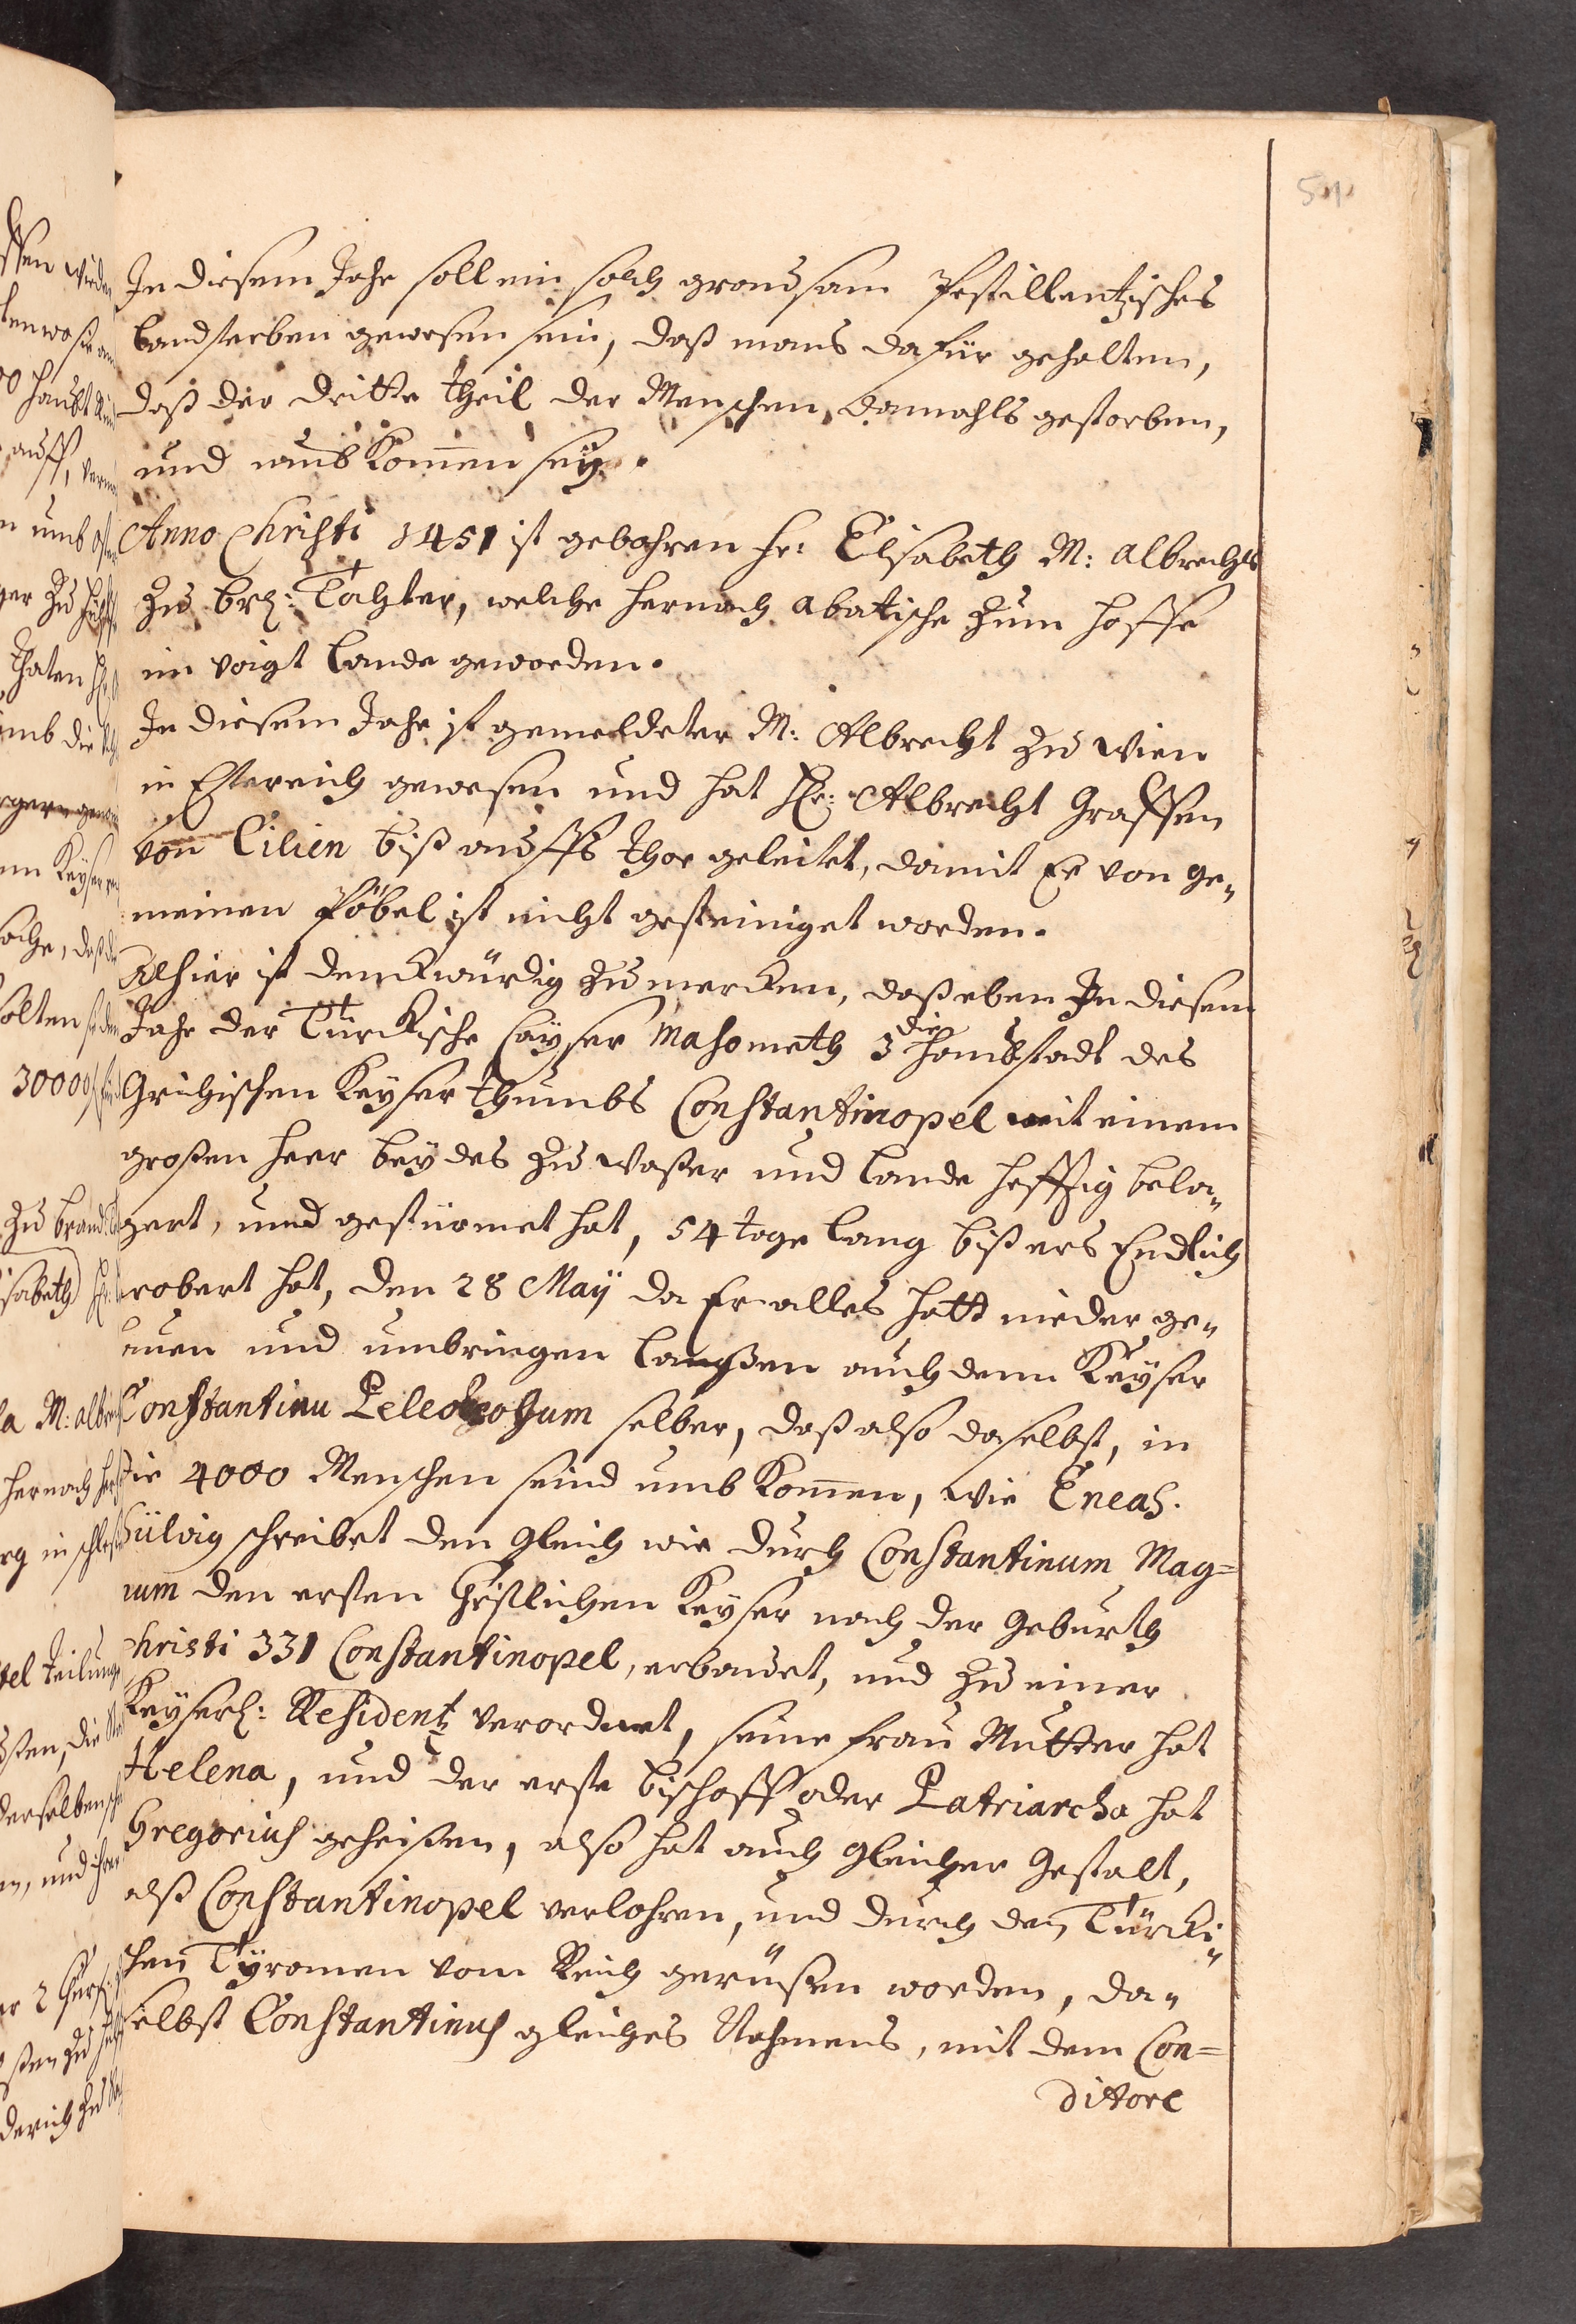 In diesem Jahr soll ein solch grausam Pestillentzisches
Landsterben gewesen sein, daß mans dafür gehalten,
daß der dritte theil der Menschen, damahls gestorben,
und umbkommen seÿ.
Anno Christi 1451 ist gebohren Fr: Elisabeth M: Albrechts
zu br: Tochter, welche hernach Abatische zum Hoffe
im Voigt Lande geworden.
In diesem Jahr ist gemeldeter M: Albrecht zu Wien
in Estereich gewesen und hat Hr: Albrecht Graffen
von Cilien biß auffs thor geleitet, damit Er von ge-
meinen Pöbel ist nicht gesteiniget worden.
Alhier ist denckwürdig zu mercken, daß eben In diesem
Jahr der Türckische Caÿser Mahometh 3 die Haubstadt des
Grichischen Keyserthumbs Constantinopel mit einem
großen Heer beydes zu Waßer und Lande hefftig bela-
gert, und gestürmet hat, 54 tage lang biß ers Endlich
erobert hat, den 28 Maÿ da Er alles hatt nieder ge-
auen und umbringen laßen auch denn Keyser
Constantinu selber, daß also daselbst, in
die 4000 Menschen seind umbkommen, wie Eneas.
Sülvig schreibet den gleich wie durch Constantinum Mag=
num den ersten Christlichen Keyser nach der Geburth
Christi 331 Constantinopel, erbauet, und zu einer
Keyserl: Residentz verordnet, seine Frau Mutter hat
Helena, und der erste Bischoff oder Patriarcha hat
Gregorius geheißen, also hat auch gleicher Gestalt,
alß Constantinopel verlohren, und durch den Türcki-
schen Tÿrannen vom Reich gerüßen worden, da-
selbst Constantinus gleiches Nahmens, mit dem Con=
ditore